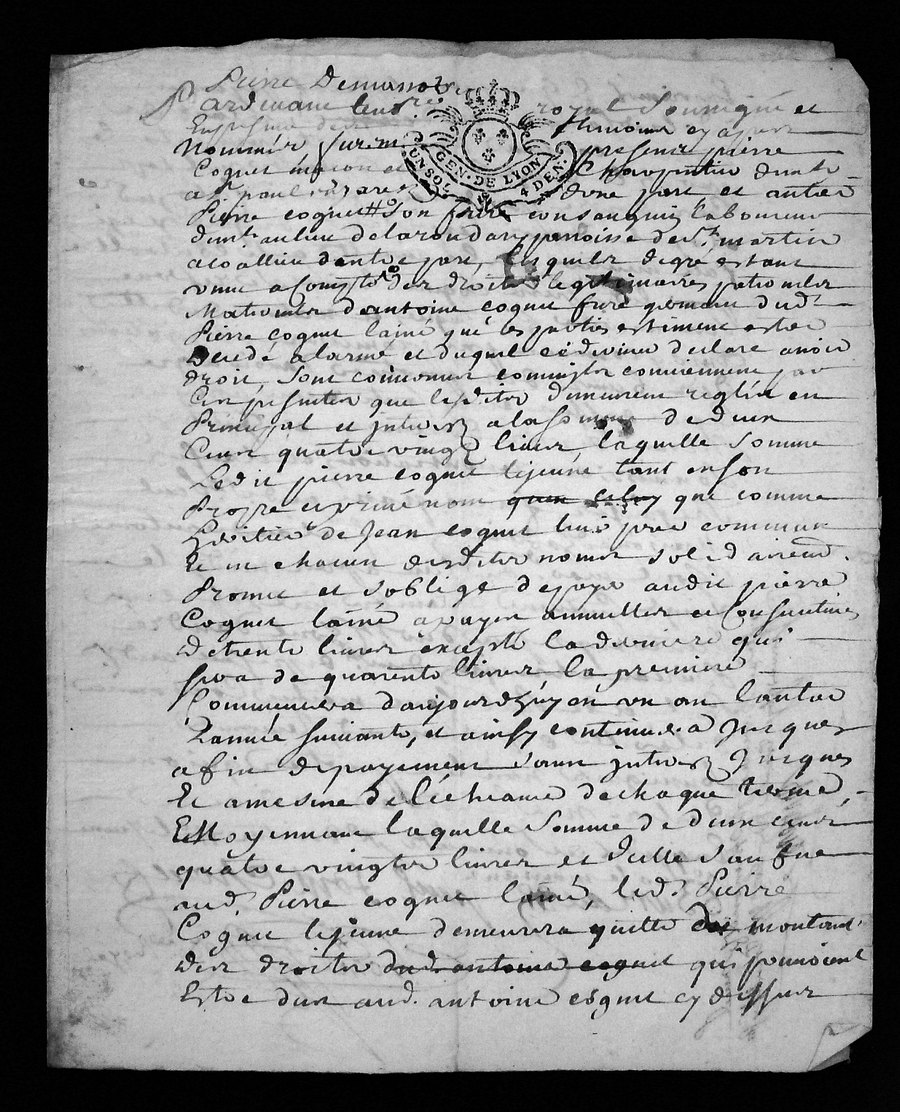 Pierre
Pardevant royal soussigné et
En presence des thémoins cy apres
Nommés furent presens pierre
Coquet maçon et Charpentier
a st paul d'une part et autre
Pierre coquet son frere consanguin laboureur
dumt au lieu de paroisse de st martin
dautre part, lesquels de gré estant
venu a compte des droits legitimaires paternels
Maternels d'antoine coquet frere germain dud.
Pierre coquet lainé que les parties estiment estre
Decedé a larmé et duquel ce dernier declare avoir
droit, sont convenus comme ils conviennent par
Ces presentes que lesdits demeurent reglés en
Principal et interez a la somme de deux
Cens quatre vingt livres laquelle somme
Ledit pierre coquet lejeune tant en son
Propre et privé nom que comme
Heritier de Jean coquet leur pere commun
Et en chacun desdits noms solidairemt.
Promet et soblige de payer audit pierre
Coquet lainé a payes annuelles et consecutives
De trente livres excepté la derniere qui
sera de quarente livres la premiere
Commencera daujourdhuy en un an lautre
Lannée suivante, et ainsy continuera jusques
a fin de payement sans interez jusques
Et a mesure de lécheance de chaque terme,
Et Moyennant laquelle somme de deux cens
quatre vingts livres et icelle sauve
aud. Pierre coquet lainé, led. Pierre
Coquet lejeune demeurera quitte du montant
des droits dud. antoine coquet qui pouvoient
Estre dus aud. antoine coquet cy dessus
GEN. DE LYON
UN SOL 4 DEN.